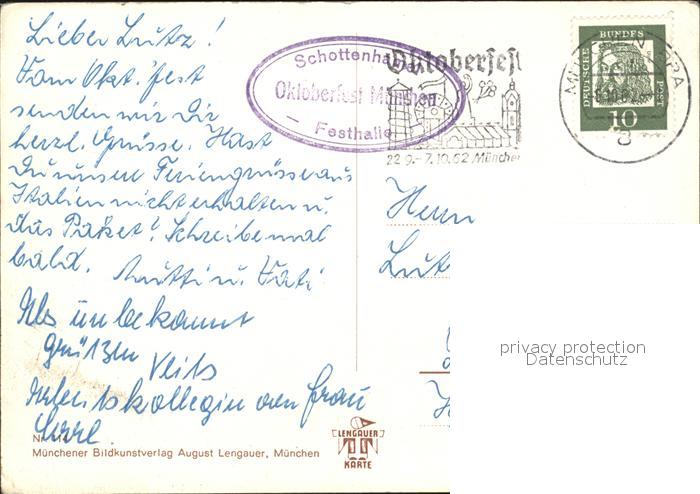 Lieber Lutz!
Vom Okt. fest
senden wir Dir
herzl. Grüsse. Hast
Du unsere Feriengrüsse aus
Italien nicht erhalten u.
das Paket? Schreibe mal
bald. Mutti u. Vati
Als unbekannt
grüßen
Veits
Arbeitskollegin von Frau
Nr.
Münchener Bildkunstverlag August Lengauer, München
LENGAUER
KARTE
Schottenhamel
Oktoberfest München
Festhalle
Oktoberfest
22.9.-7.10.62 München
DEUTSCHE
BUNDES
POST
10
Herrn
privacy protection
Datenschutz